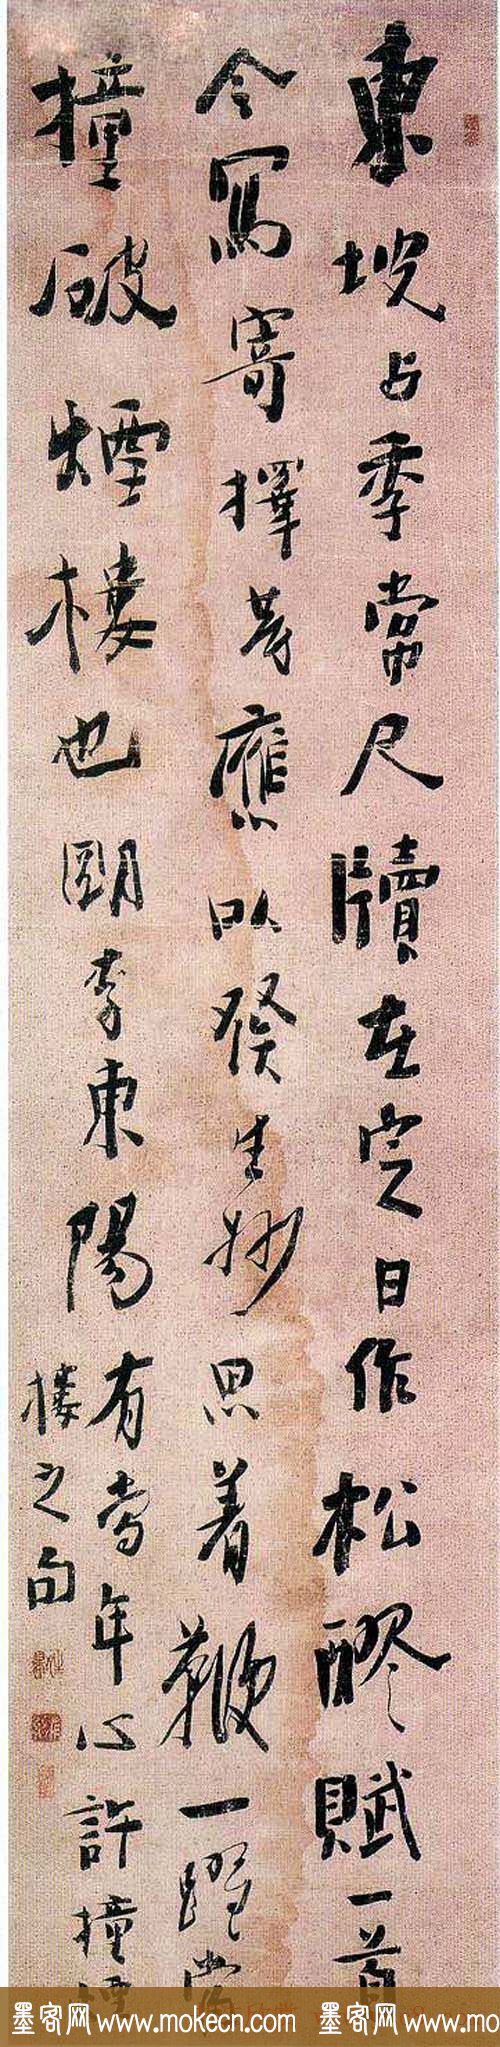 東坡占季常尺牘在定日作松醪賦一首
今寫寄擇等應以發生妙思着鞭一躍當
撞破煙樓也朙李東陽有當年心許撞煙
樓之句
墨客网 www.mokecn.com 墨客网 www.mokecn.com